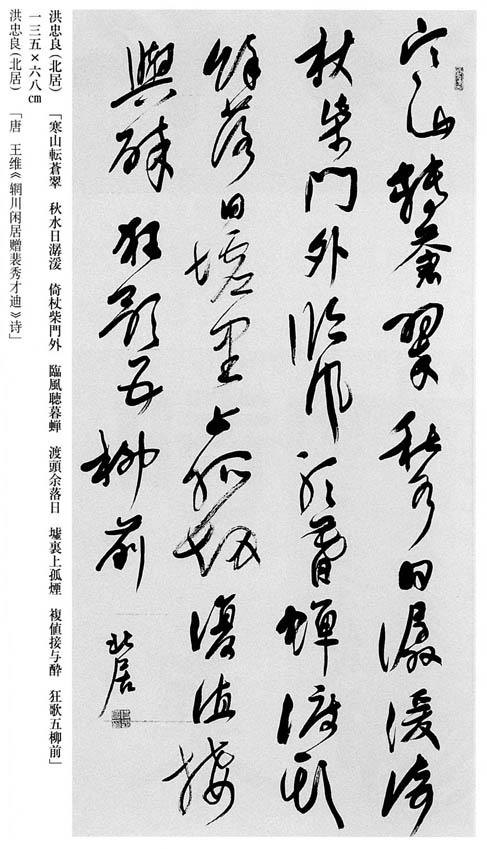 寒山轉蒼翠秋水日潺湲倚
杖柴門外臨風聽暮蟬渡頭
餘落日墟里上孤烟復值接
輿醉狂歌五柳前
北居
洪忠良(北居) 「寒山転蒼翠 秋水日潺湲 倚杖柴門外 臨風聴暮蝉 渡頭余落日 墟裏上孤煙 複偵接与酔 狂歌五柳前」
一三五×六八cm
洪忠良(北居) 「唐 王维《辋川闲居赠裴秀才迪》诗」